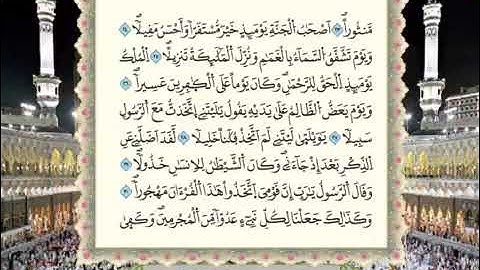 مَّنثُوراًۖ اَصْحَٰبُ الْجَنَّةِ يَوْمَئِذٍ خَيْرٌ مُّسْتَقَرّاً وَأَحْسَنُ مَقِيلاًۖ
وَيَوْمَ تَشَّقَّقُ السَّمَآءُ بِالْغَمَٰمِ وَنُزِّلَ الْمَلَٰٓئِكَةُ تَنزِيلاًۖ اِلْمُلْكُ
يَوْمَئِذٍ الْحَقُّ لِلرَّحْمَٰنِۖ وَكَانَ يَوْماً عَلَى الْكٰفِرِينَ عَسِيراًۖ
وَيَوْمَ يَعَضُّ الظَّالِمُ عَلَىٰ يَدَيْهِ يَقُولُ يَٰلَيْتَنِے اِتَّخَذتُّ مَعَ الرَّسُولِ
سَبِيلاًۖ يَٰوَيْلَتَىٰ لَيْتَنِے لَمَ اَتَّخِذْ فُلَٰناً خَلِيلاًۖ لَّقَدَ اَضَلَّنِے عَنِ
اِلذِّكْرِ بَعْدَ إِذْ جَآءَنِےۖ وَكَانَ الشَّيْطَٰنُ لِلِانسَٰنِ خَذُولاًۖ
وَقَالَ الرَّسُولُ يَٰرَبِّ إِنَّ قَوْمِے اِتَّخَذُواْ هَٰذَا الْقُرْءَانَ مَهْجُوراًۖ
وَكَذَٰلِكَ جَعَلْنَا لِكُلِّ نَبِےٓءٍ عَدُوّاً مِّنَ الْمُجْرِمِينَۖ وَكَفَىٰ